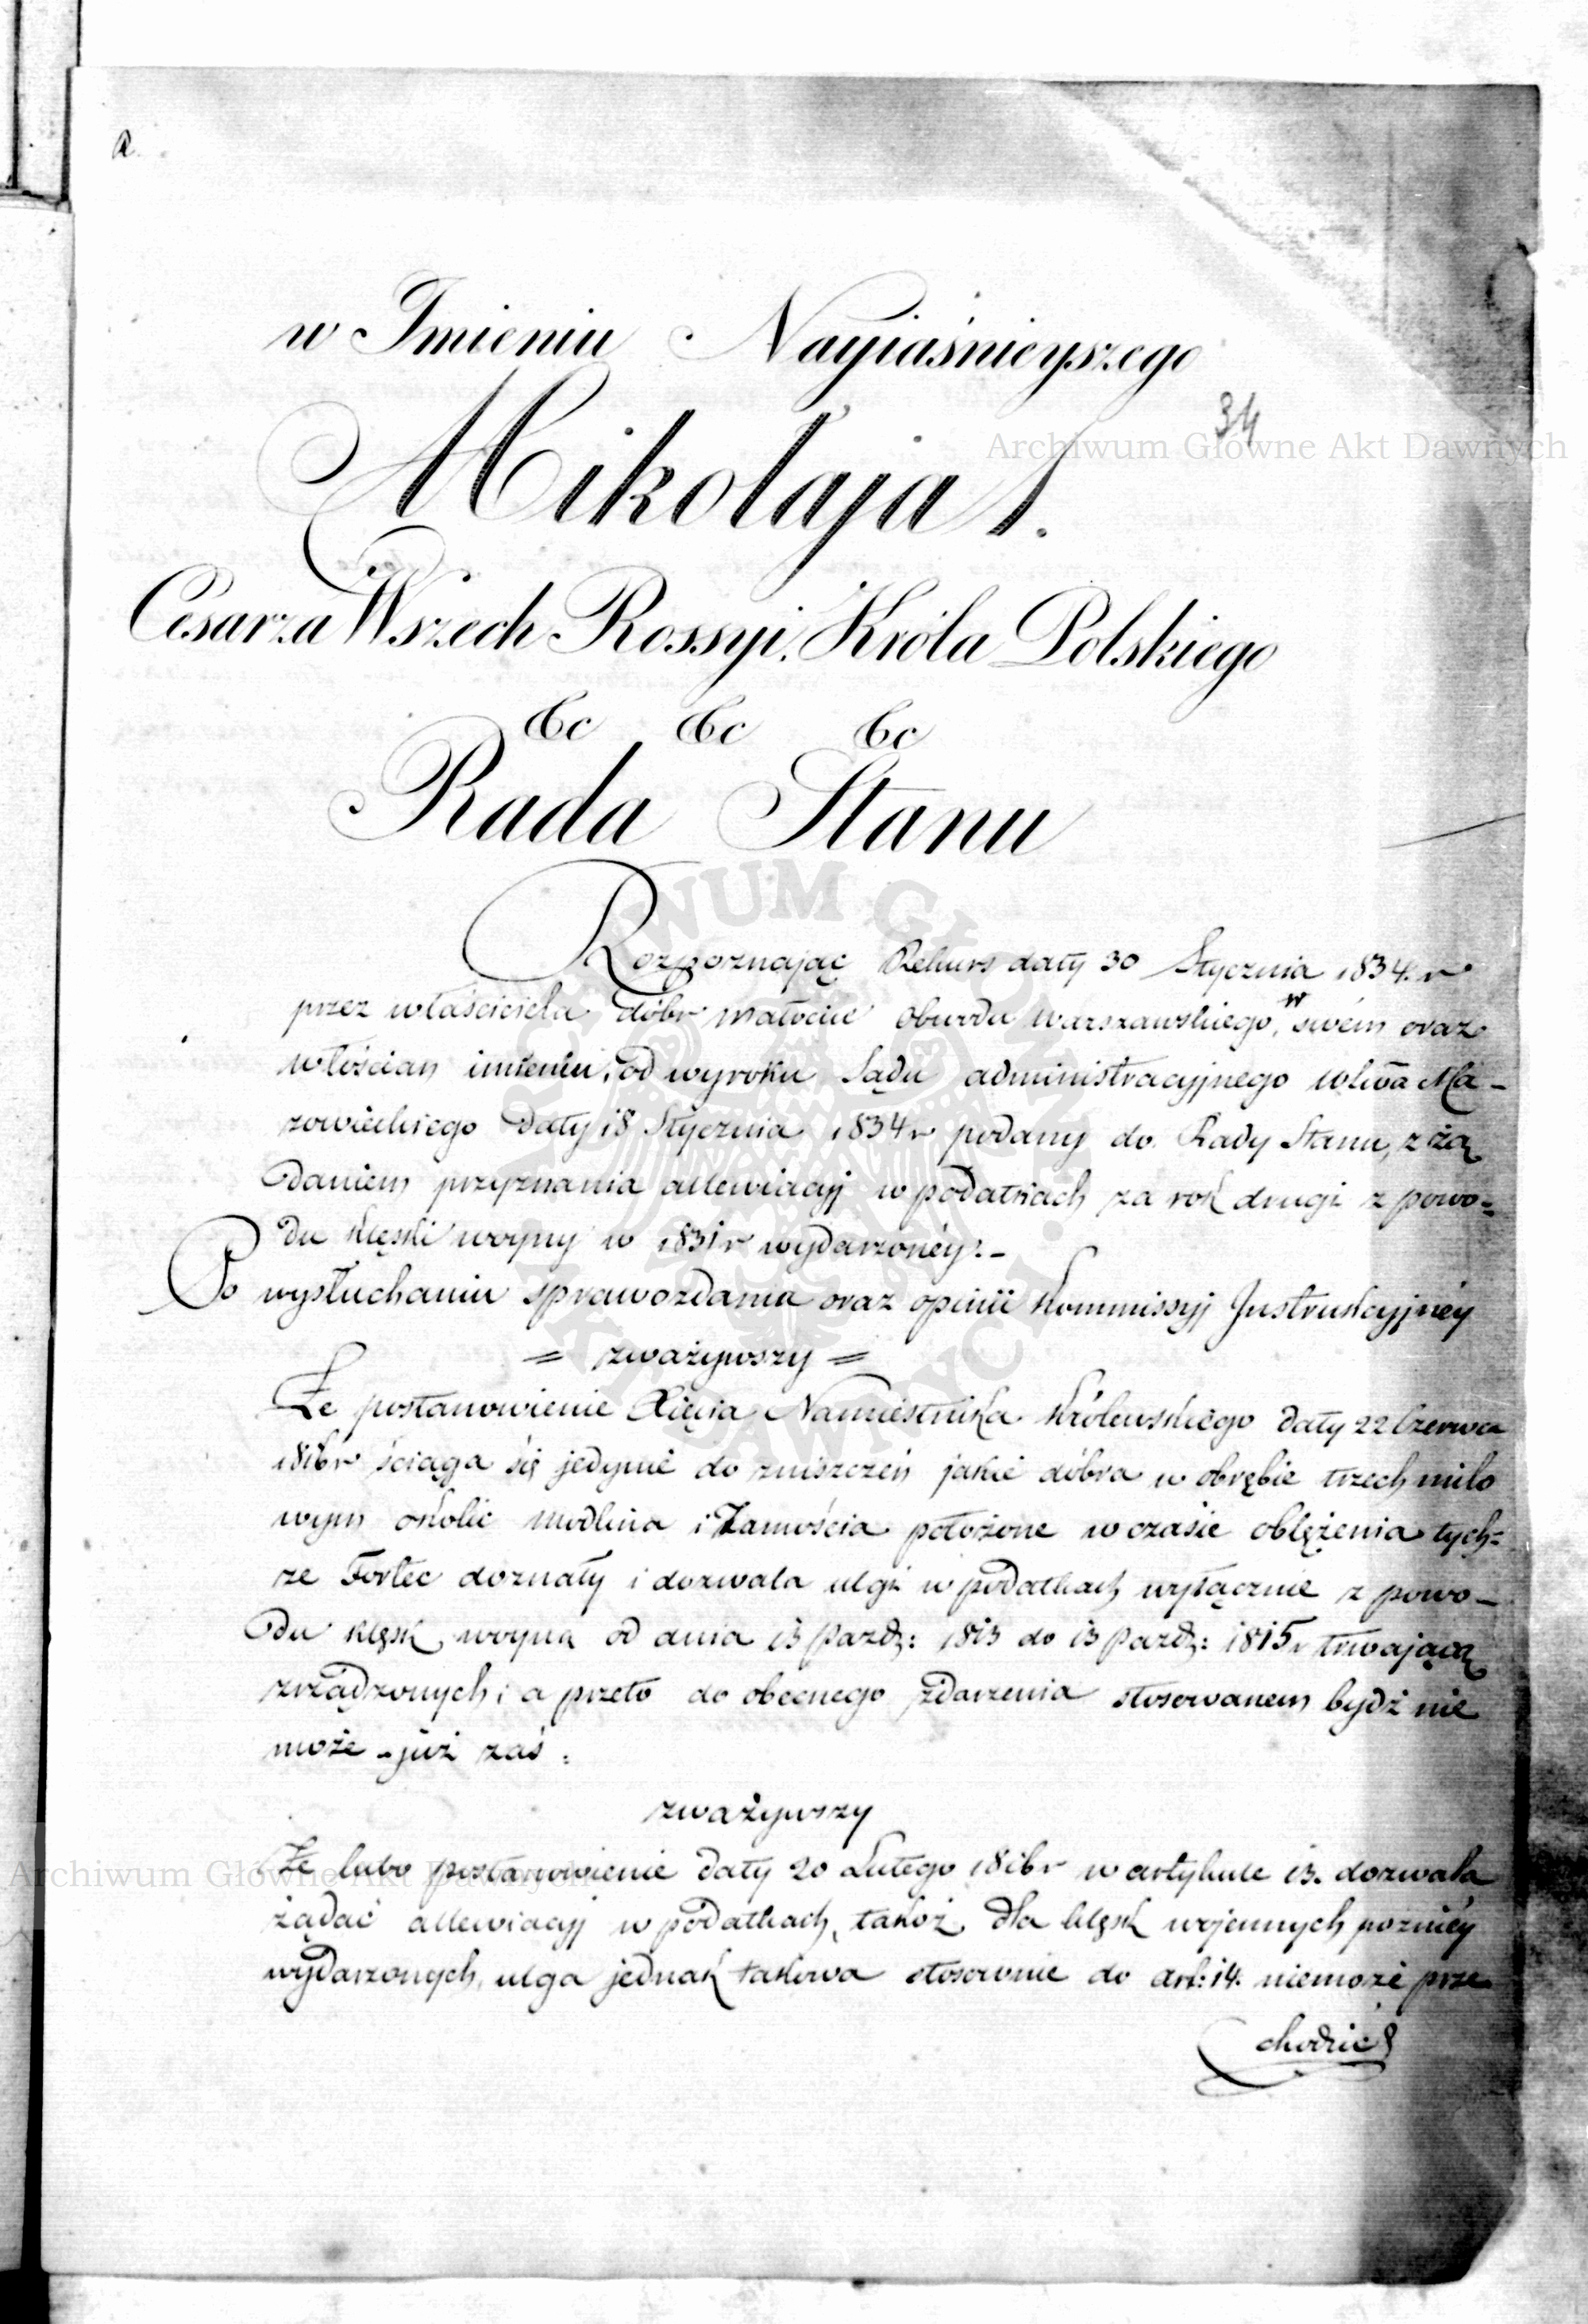 a
w Imieniu Nayiaśnieyszego
34
Archiwum Główne Akt Dawnych
Mikołaja I.
Cesarza Wszech Rossyi, Króla Polskiego
&c &c &c
Rada Stanu
Rozpoznając Rekurs daty 30 Stycznia 1834. r
przez właściciela dóbr Małocice obwodu Warszawskiego, w swém oraz
włościan imieniu, od wyroku Sądu administracyjnego wtwa Ma-
zowieckiego daty 18 Stycznia 1834 r podany do Rady Stanu, z żą
daniem przyznania allewiacyj w podatkach za rok drugi z powo-
du klęski woyny w 1831 r wydarzonéy:-
Po wysłuchaniu sprawozdania oraz opinii Kommissyj Instrukcyjnéy
= zważywszy =
Że postanowienie Xięcia Namiestnika Królewskiego daty 22 Czerwca
1816 r ściąga się jedynie do zniszczeń jakie dóbra w obrębie trzech milo
wym okolic Modlina i Zamościa położone w czasie oblężenia tych=
że Fortec doznały i dozwala ulgi w podatkach wyłącznie z powo-
du klęsk woyną od dnia 13 Pazdz: 1813 do 13 Pazdz: 1815 r trwającą
zrządzonych; a przeto do obecnego zdarzenia stosowanem bydź nie
może - już zaś :
zważywszy
Że lubo postanowienie daty 20 Lutego 1816 r w artykule 13. dozwala
żądać allewiacyj w podatkach, takoż dla klęsk wojennych pozniéy
wydarzonych, ulga jednak takowa stosownie do art: 14. niemoże prze
chodzić
Archiwum Główne Akt Dawnych
ARCHIWUM GŁÓWNE AKT DAWNYCH